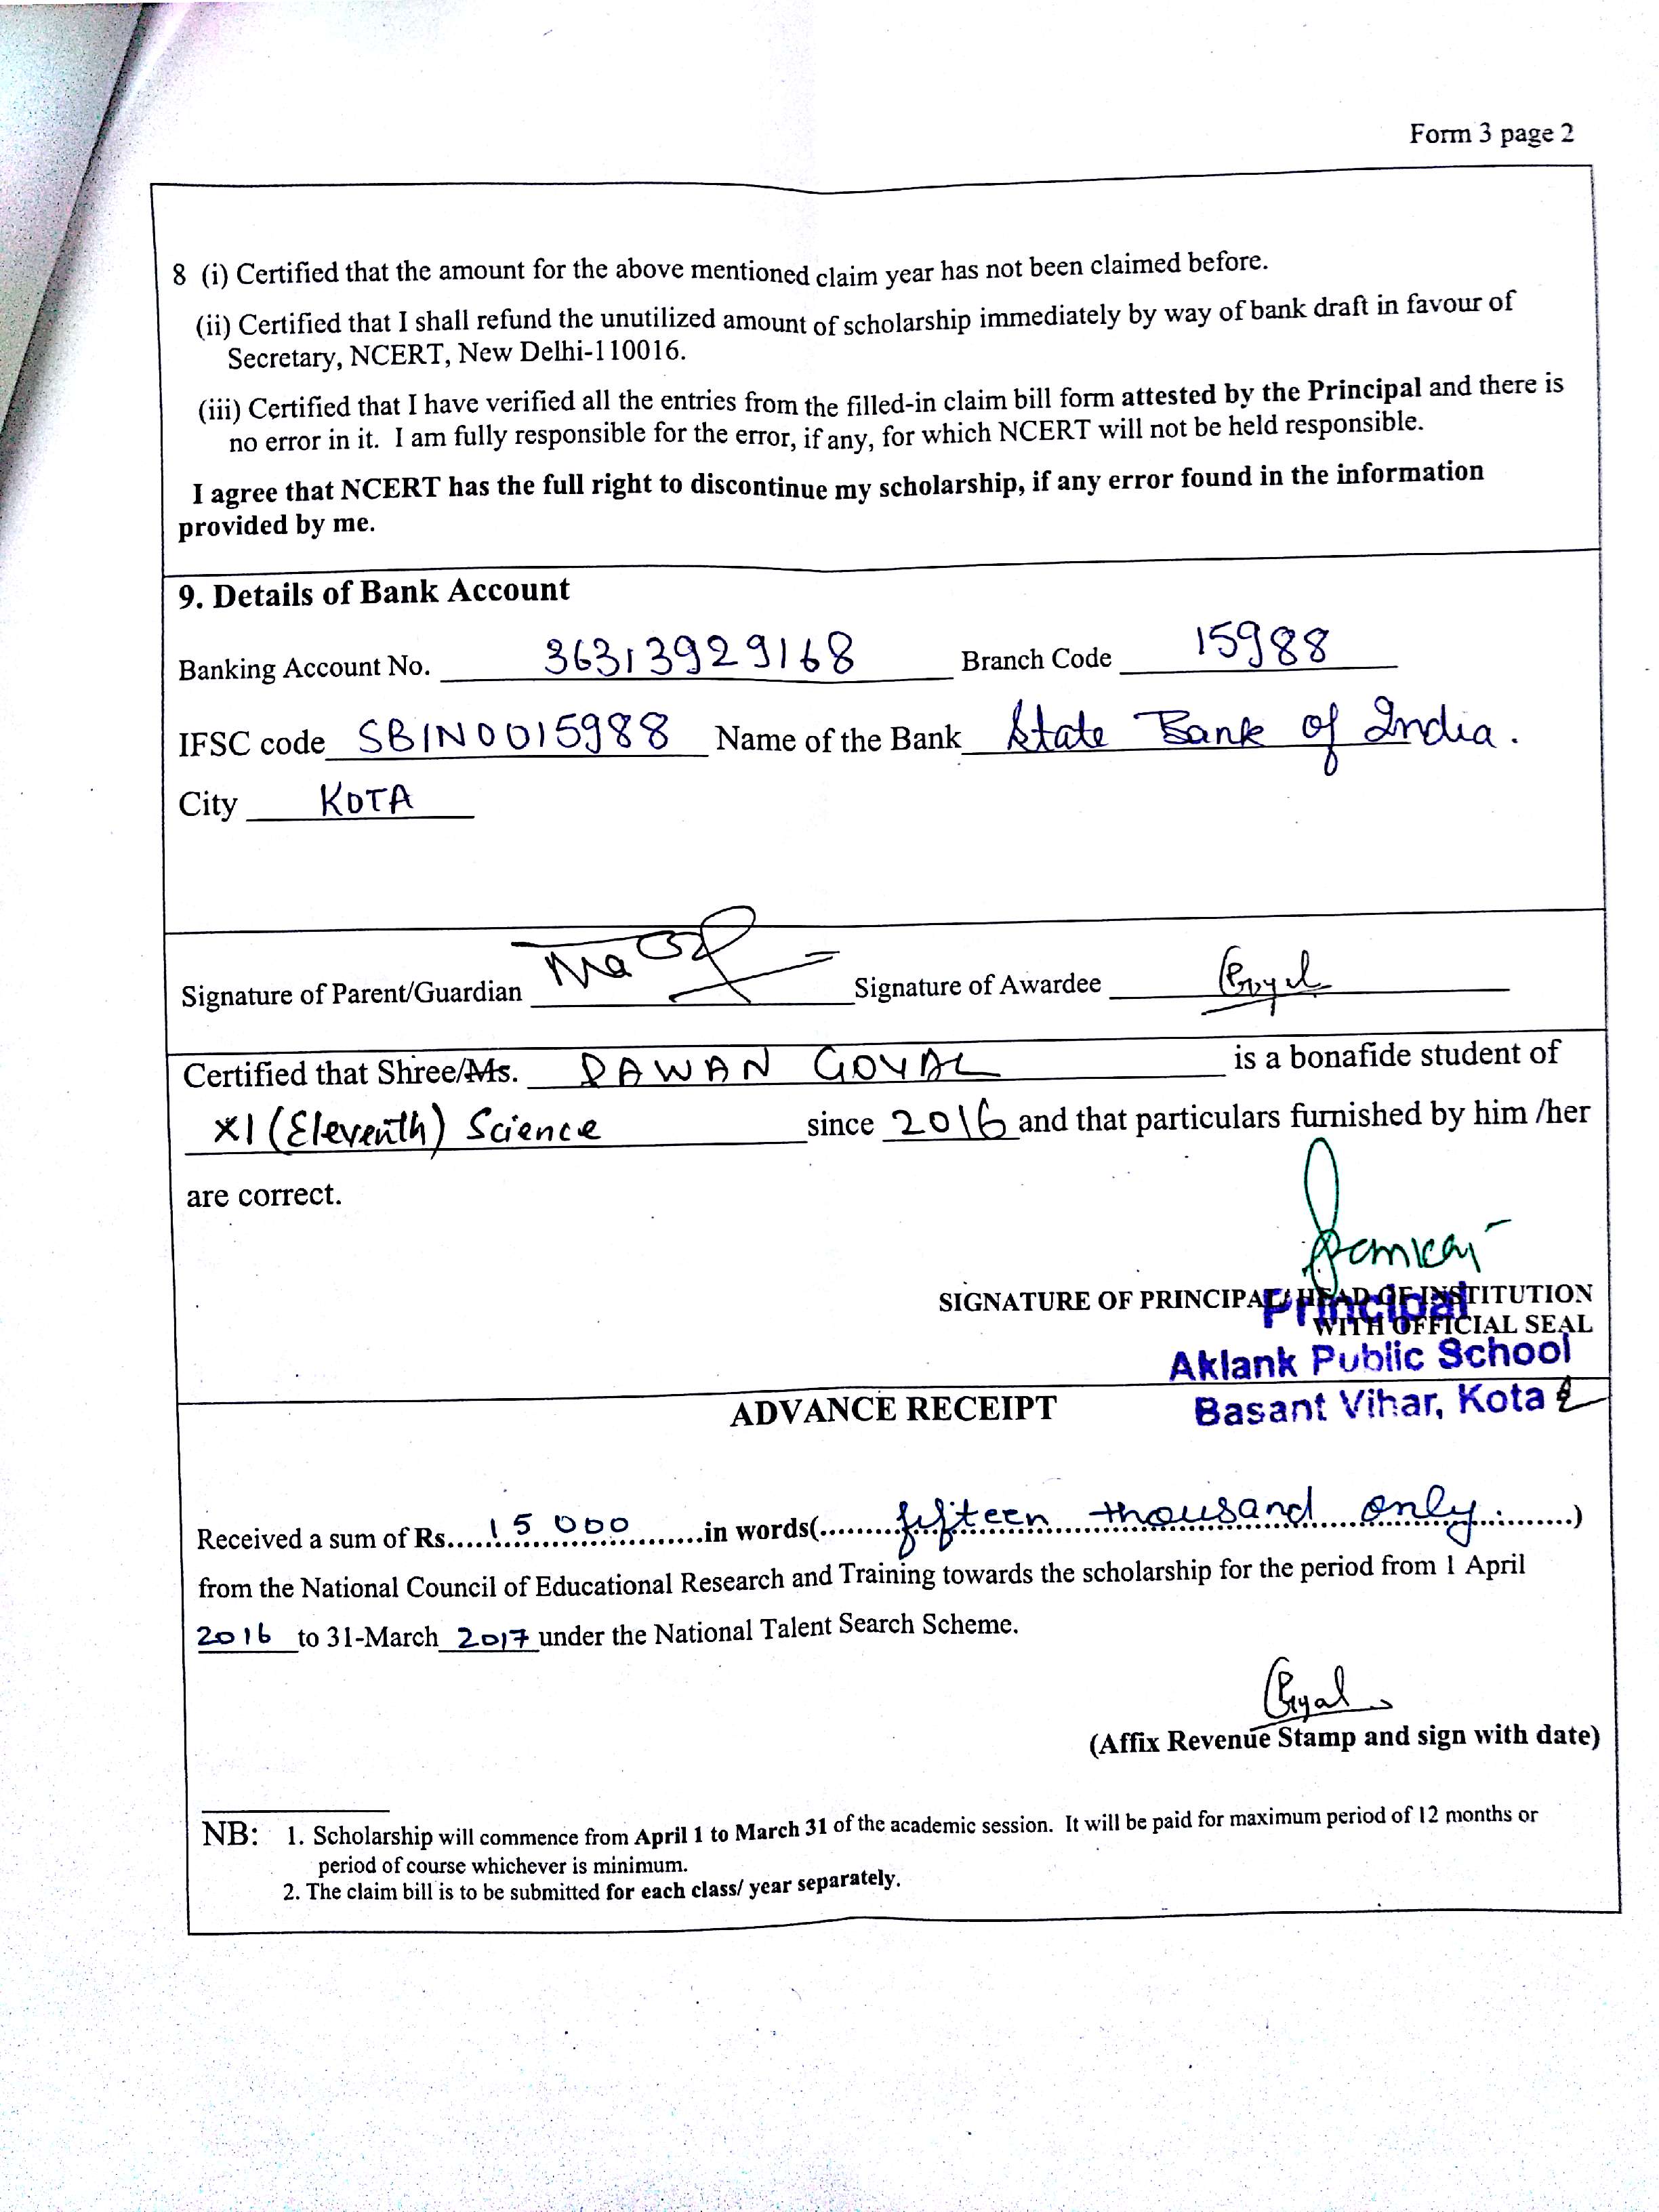 Form 3 page 2
8 (i) Certified that the amount for the above mentioned claim year has not been claimed before.
(ii) Certified that I shall refund the unutilized amount of scholarship immediately by way of bank draft in favour of
Secretary, NCERT, New Delhi-110016.
(iii) Certified that I have verified all the entries from the filled-in claim bill form attested by the Principal and there is
no error in it. I am fully responsible for the error, if any, for which NCERT will not be held responsible.
I agree that NCERT has the full right to discontinue my scholarship, if any error found in the information
provided by me.
9. Details of Bank Account
Banking Account No. 36313929168 Branch Code 15988
IFSC code SBIN0015988 Name of the Bank State Bank of India.
City KOTA
Signature of Parent/Guardian Signature of Awardee
Certified that Shree/Ms. PAWAN GOYAL is a bonafide student of
XI (Eleventh) Science since 2016 and that particulars furnished by him /her
are correct.
SIGNATURE OF PRINCIPAL/ HEAD OF INSTITUTION
Principal
WITH OFFICIAL SEAL
Aklank Public School
Basant Vihar, Kota
ADVANCE RECEIPT
Received a sum of Rs. 15000 in words( fifteen thousand only. )
from the National Council of Educational Research and Training towards the scholarship for the period from 1 April
2016 to 31-March 2017 under the National Talent Search Scheme.
(Affix Revenue Stamp and sign with date)
NB: 1. Scholarship will commence from April 1 to March 31 of the academic session. It will be paid for maximum period of 12 months or
period of course whichever is minimum.
2. The claim bill is to be submitted for each class/ year separately.